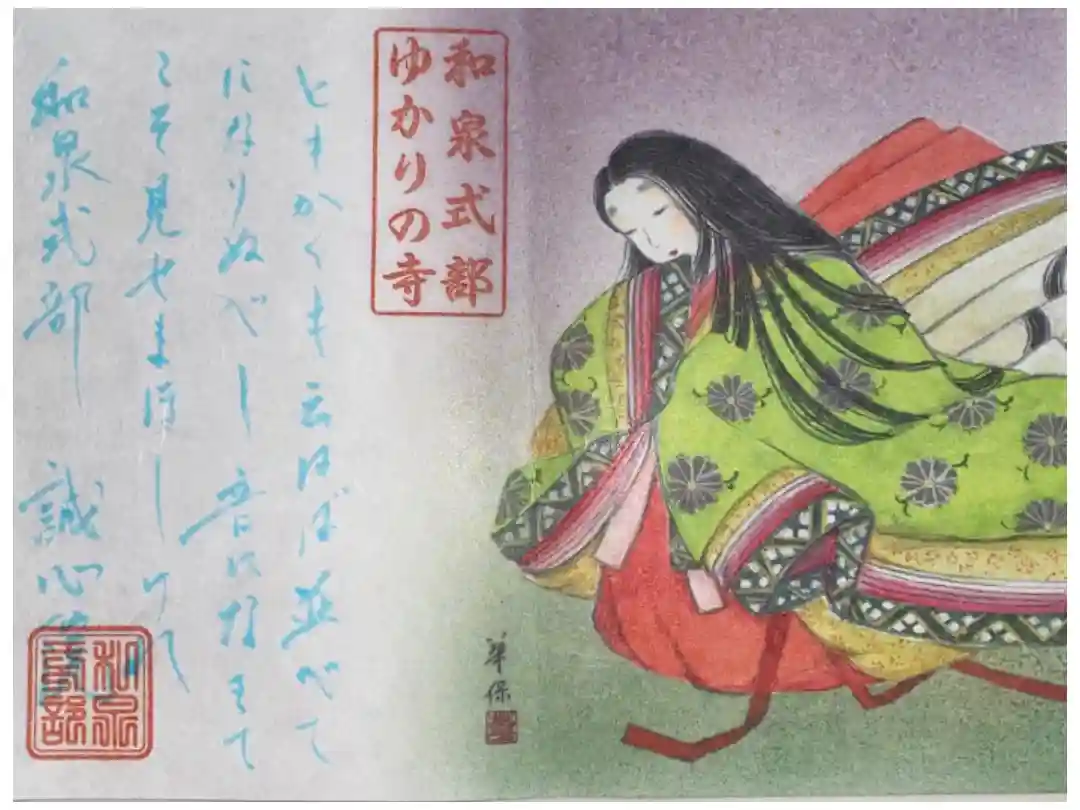 和泉式部
ゆかりの寺
ともかくも云はば並べて
になりぬべし 音になきて
こそ見せまほしけれ
和泉式部 誠心院
和泉式部
華保